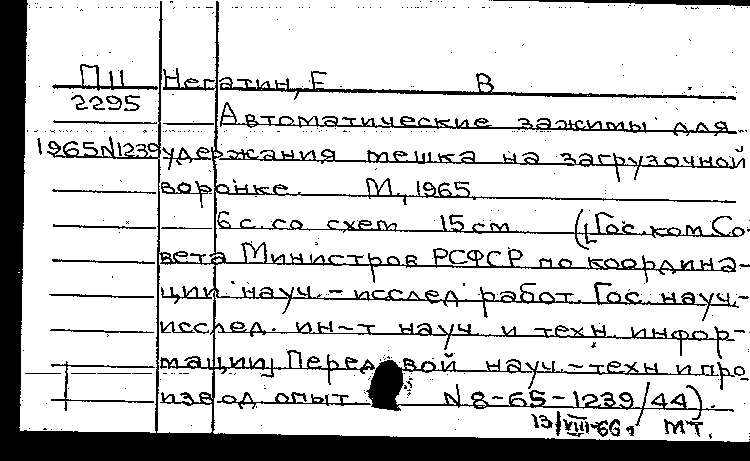 П11 Негатин, Е В
2295
Автоматические зажимы для
1965N1239 удержания мешка на загрузочной
воронке. М., 1965.
6 с. со схем 15 см ([Гос. ком Со-
вета Министров РСФСР по координа-
ции науч.-исслед работ. Гос. науч.-
исслед. ин-т науч и техн. инфор-
мации] Передовой науч.-техн и про
извод опыт N 8-65-1239/44).
13/VIII-66г МТ.